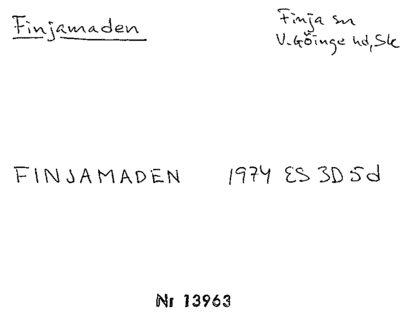 Finjamaden
Finja sn
V. Göinge hd, Sk
FINJAMADEN 1974 ES 3D5d
Nr 13963